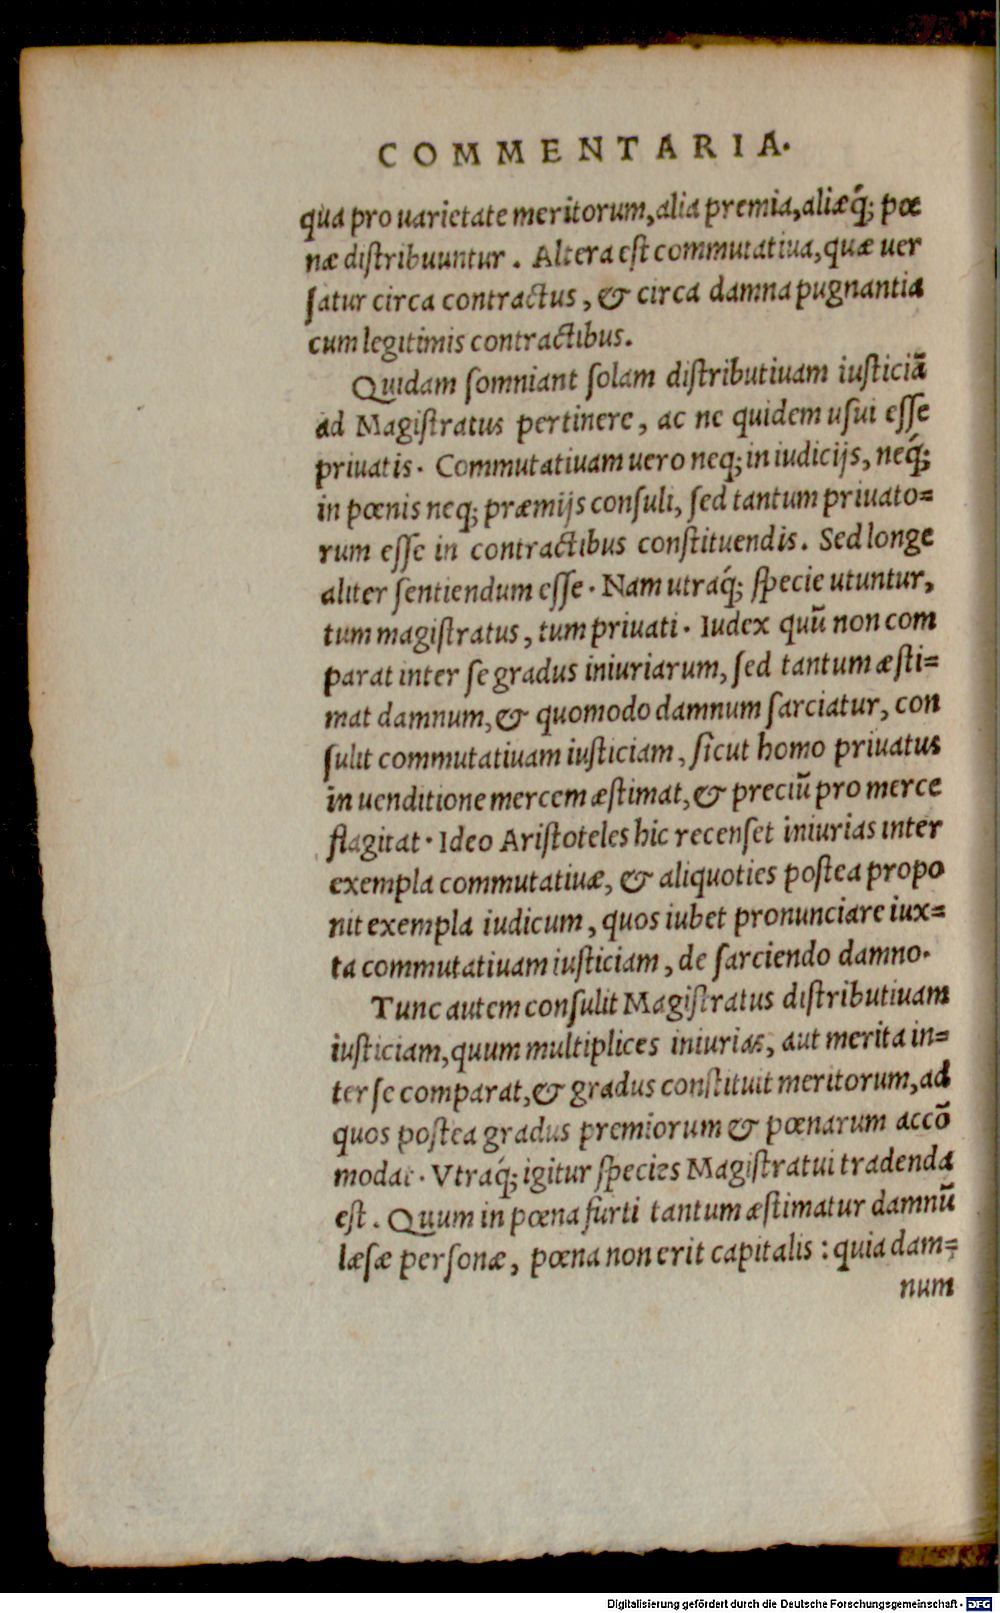 COMMENTARIA.
qua pro uarietate meritorum, alia premia, aliæq́; pœ
næ distribuuntur. Altera est commutatiua, quæ uer
satur circa contractus, & circa damna pugnantia
cum legitimis contractibus.
Quidam somniant solam distributiuam iusticiā
ad Magistratus pertinere, ac ne quidem usui esse
priuatis. Commutatiuam uero neq; in iudicijs, neq́;
in pœnis neq; præmijs consuli, sed tantum priuato=
rum esse in contractibus constituendis. Sed longe
aliter sentiendum esse. Nam utraq́; specie utuntur,
tum magistratus, tum priuati. Iudex quū non com
parat inter se gradus iniuriarum, sed tantum æsti=
mat damnum, & quomodo damnum sarciatur, con
sulit commutatiuam iusticiam, sicut homo priuatus
in uenditione mercem æstimat, & preciū pro merce
flagitat. Ideo Aristoteles hic recenset iniurias inter
exempla commutatiuæ, & aliquoties postea propo
nit exempla iudicum, quos iubet pronunciare iux=
ta commutatiuam iusticiam, de sarciendo damno.
Tunc autem consulit Magistratus distributiuam
iusticiam, quum multiplices iniurias, aut merita in=
ter se comparat, & gradus constituit meritorum, ad
quos postea gradus premiorum & pœnarum accō
modat. Vtraq́; igitur species Magistratui tradenda
est. Quum in pœna furti tantum æstimatur damnū
læsæ personæ, pœna non erit capitalis: quia dam=
num
Digitalisierung gefördert durch die Deutsche Forschungsgemeinschaft - DFG